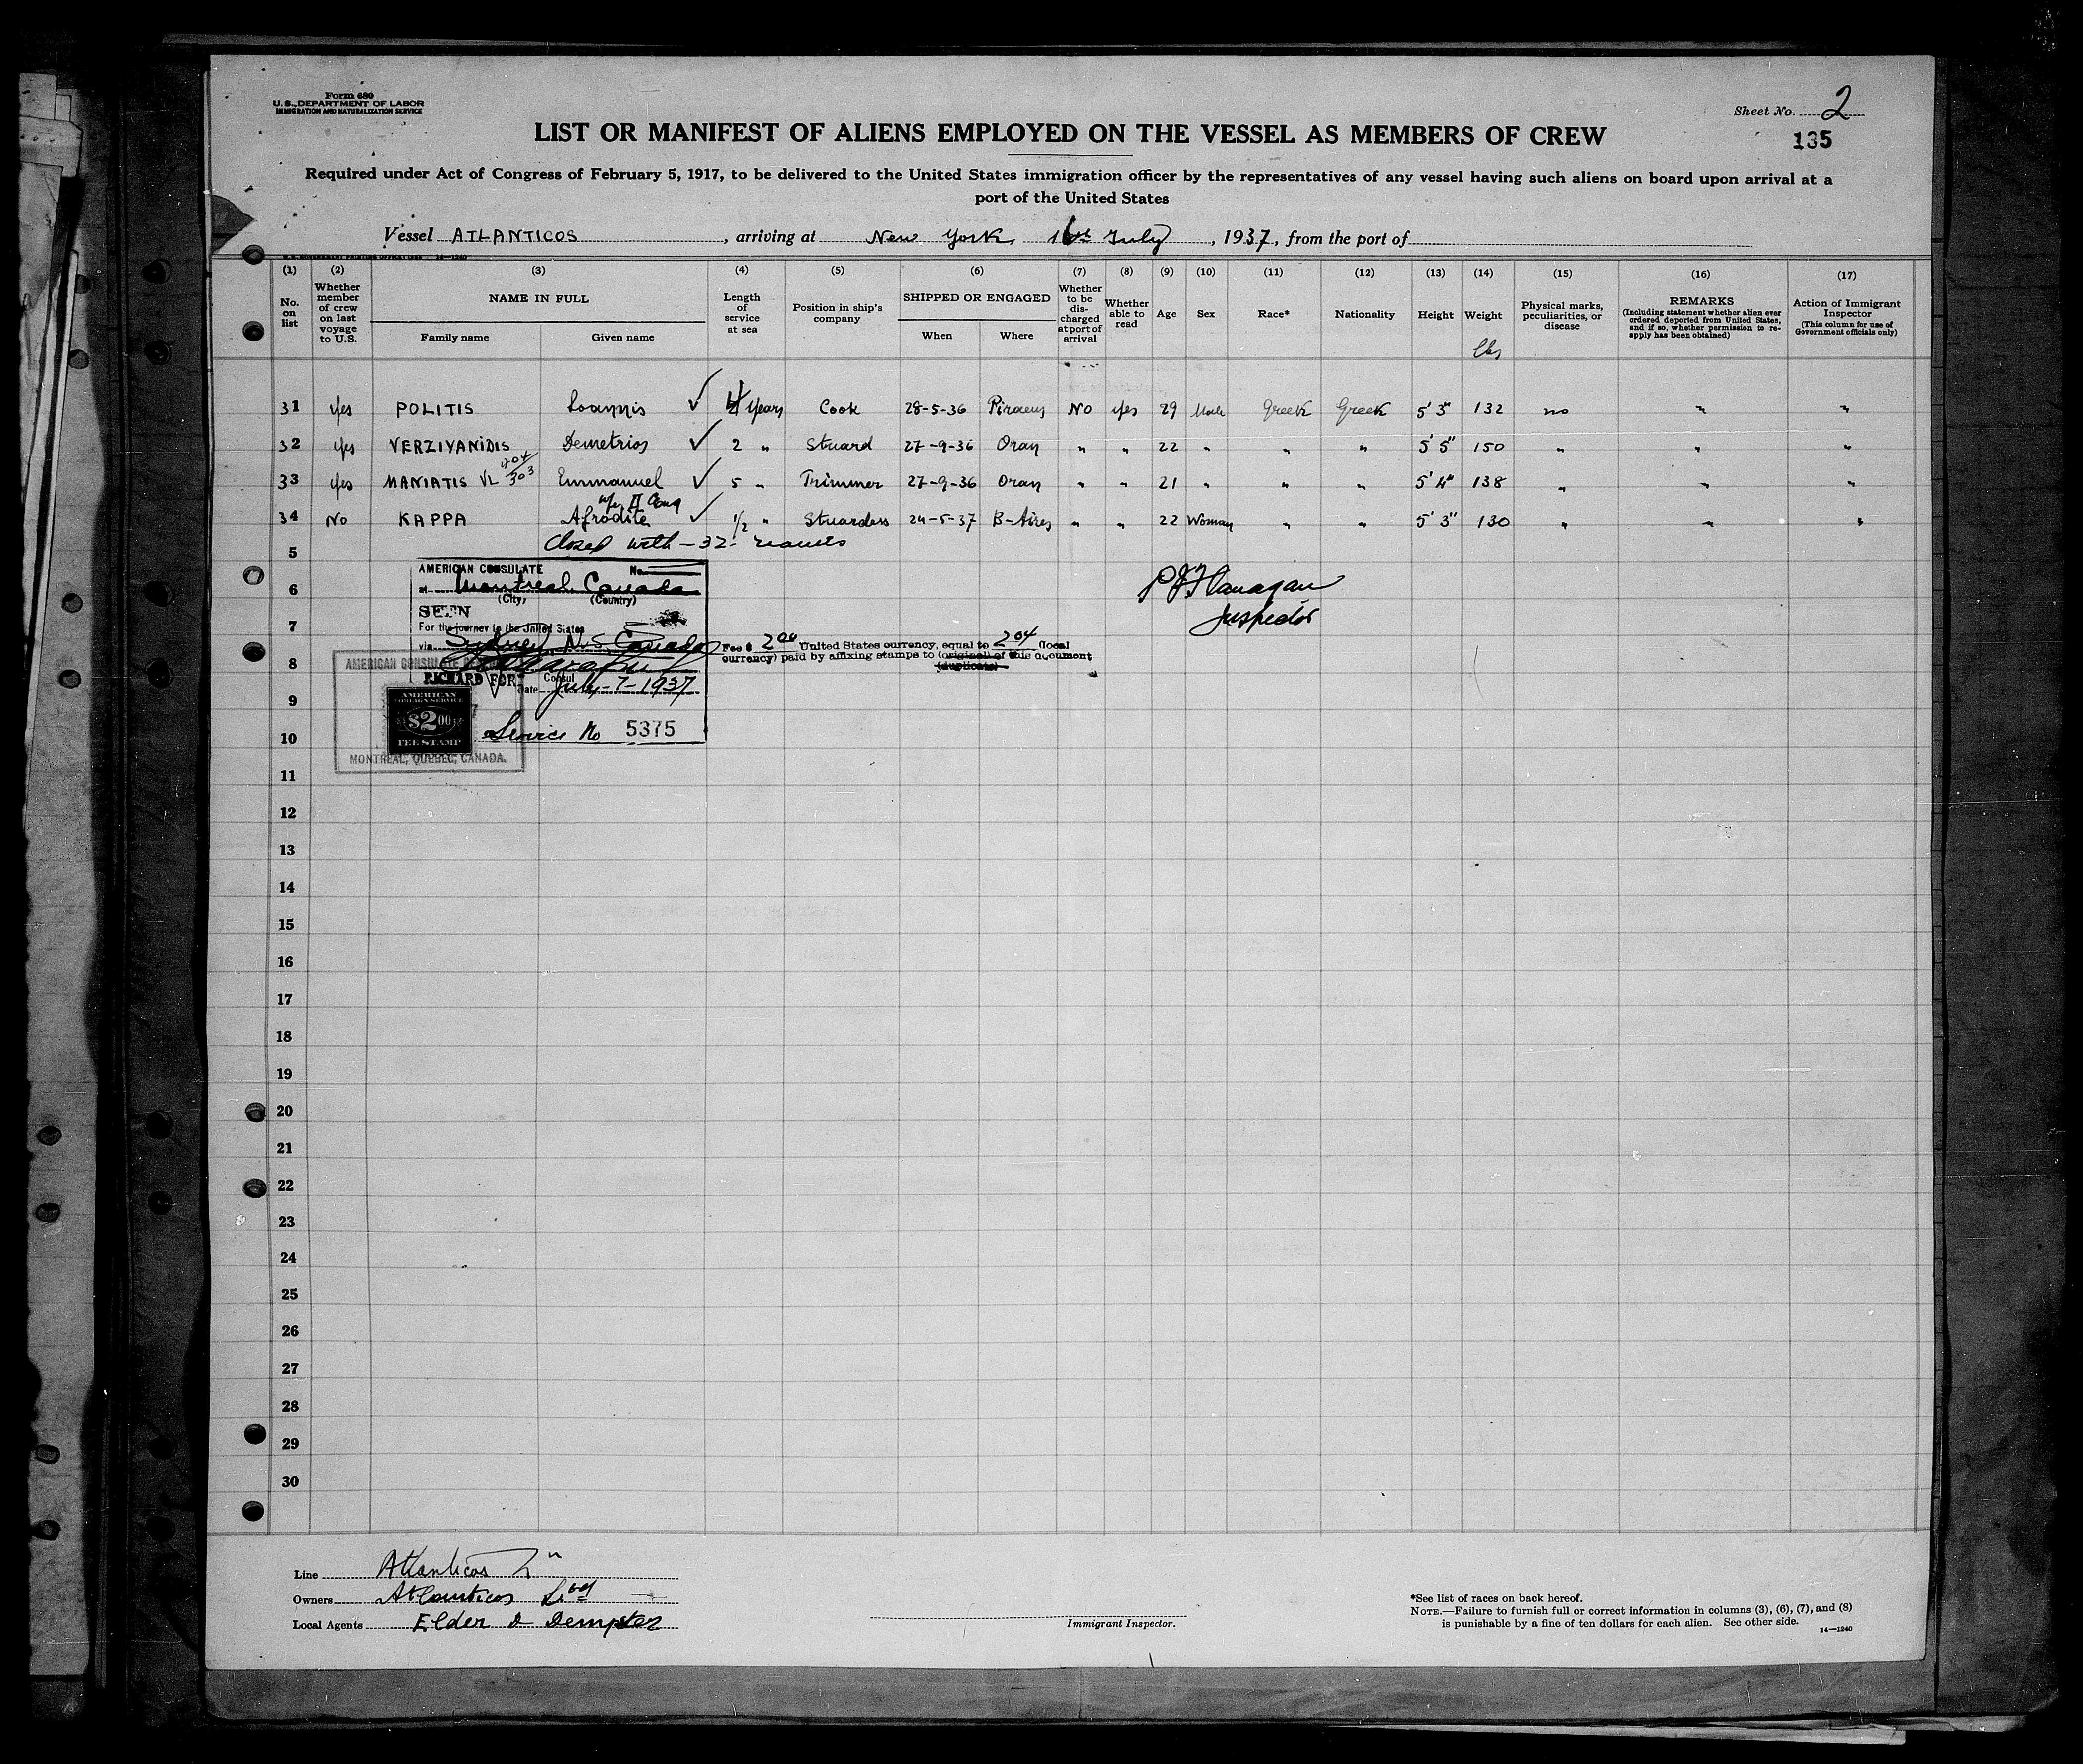 Form 680
U.S. DEPARTMENT OF LABOR
IMMIGRATION AND NATURALIZATION SERVICE
Sheet No. 2
135
LIST OR MANIFEST OF ALIENS EMPLOYED ON THE VESSEL AS MEMBERS OF CREW
Required under Act of Congress of February 5, 1917, to be delivered to the United States immigration officer by the representatives of any vessel having such aliens on board upon arrival at a
port of the United States
Vessel ATLANTICOS, arriving at New York 16th July, 1937, from the port of
14—1240
(1) (2) (3) (4) (5) (6) (7) (8) (9) (10) (11) (12) (13) (14) (15) (16) (17)
No. on list
Whether member of crew on last voyage to U.S.
NAME IN FULL
Family name
Given name
Length of service at sea
Position in ship's company
SHIPPED OR ENGAGED
When
Where
Whether to be discharged at port of arrival
Whether able to read
Age
Sex
Race*
Nationality
Height
Weight
lbs
Physical marks, peculiarities, or disease
REMARKS
(Including statement whether alien ever ordered deported from United States, and if so, whether permission to reapply has been obtained)
Action of Immigrant Inspector
(This column for use of Government officials only)
31 Yes POLITIS Ioannis ✓ 4 Years Cook 28-5-36 Piraeus No Yes 29 Male Greek Greek 5' 3" 132 no " "
32 Yes VERZIYANIDIS Demetrios ✓ 2 " Stuard 27-9-36 Oran " " 22 " " " 5' 5" 150 " " "
33 Yes MANIATIS VL 204/303 Emmanuel ✓ 5 " Trimmer 27-9-36 Oran " " 21 " " " 5' 4" 138 " " "
34 No KAPPA Afrodite ✓ 1/2 " Stuardess 24-5-37 B-Aires " " 22 Woman " " 5' 3" 130 " " "
Closed with -32-
5
AMERICAN CONSULATE No.
at Montreal, Canada
(City) (Country)
6
SEEN
For the journey to the United States
7
via Sydney N.S. Canada
P J Flanagan
Inspector
Fee $ 2.00 United States currency, equal to 2.04 (local
currency) paid by affixing stamps to (original) of this document
(duplicate)
8
AMERICAN CONSULATE
RICHARD FORD
Consul
Date July-7-1937
9
AMERICAN
FOREIGN SERVICE
$2.00
FEE STAMP
Service No 5375
10
MONTREAL, QUEBEC, CANADA.
11
12
13
14
15
16
17
18
19
20
21
22
23
24
25
26
27
28
29
30
Line Atlanticos
Owners Atlanticos Ltd
Local Agents Elder & Dempster
Immigrant Inspector.
*See list of races on back hereof.
NOTE.—Failure to furnish full or correct information in columns (3), (6), (7), and (8)
is punishable by a fine of ten dollars for each alien. See other side.
14—1240